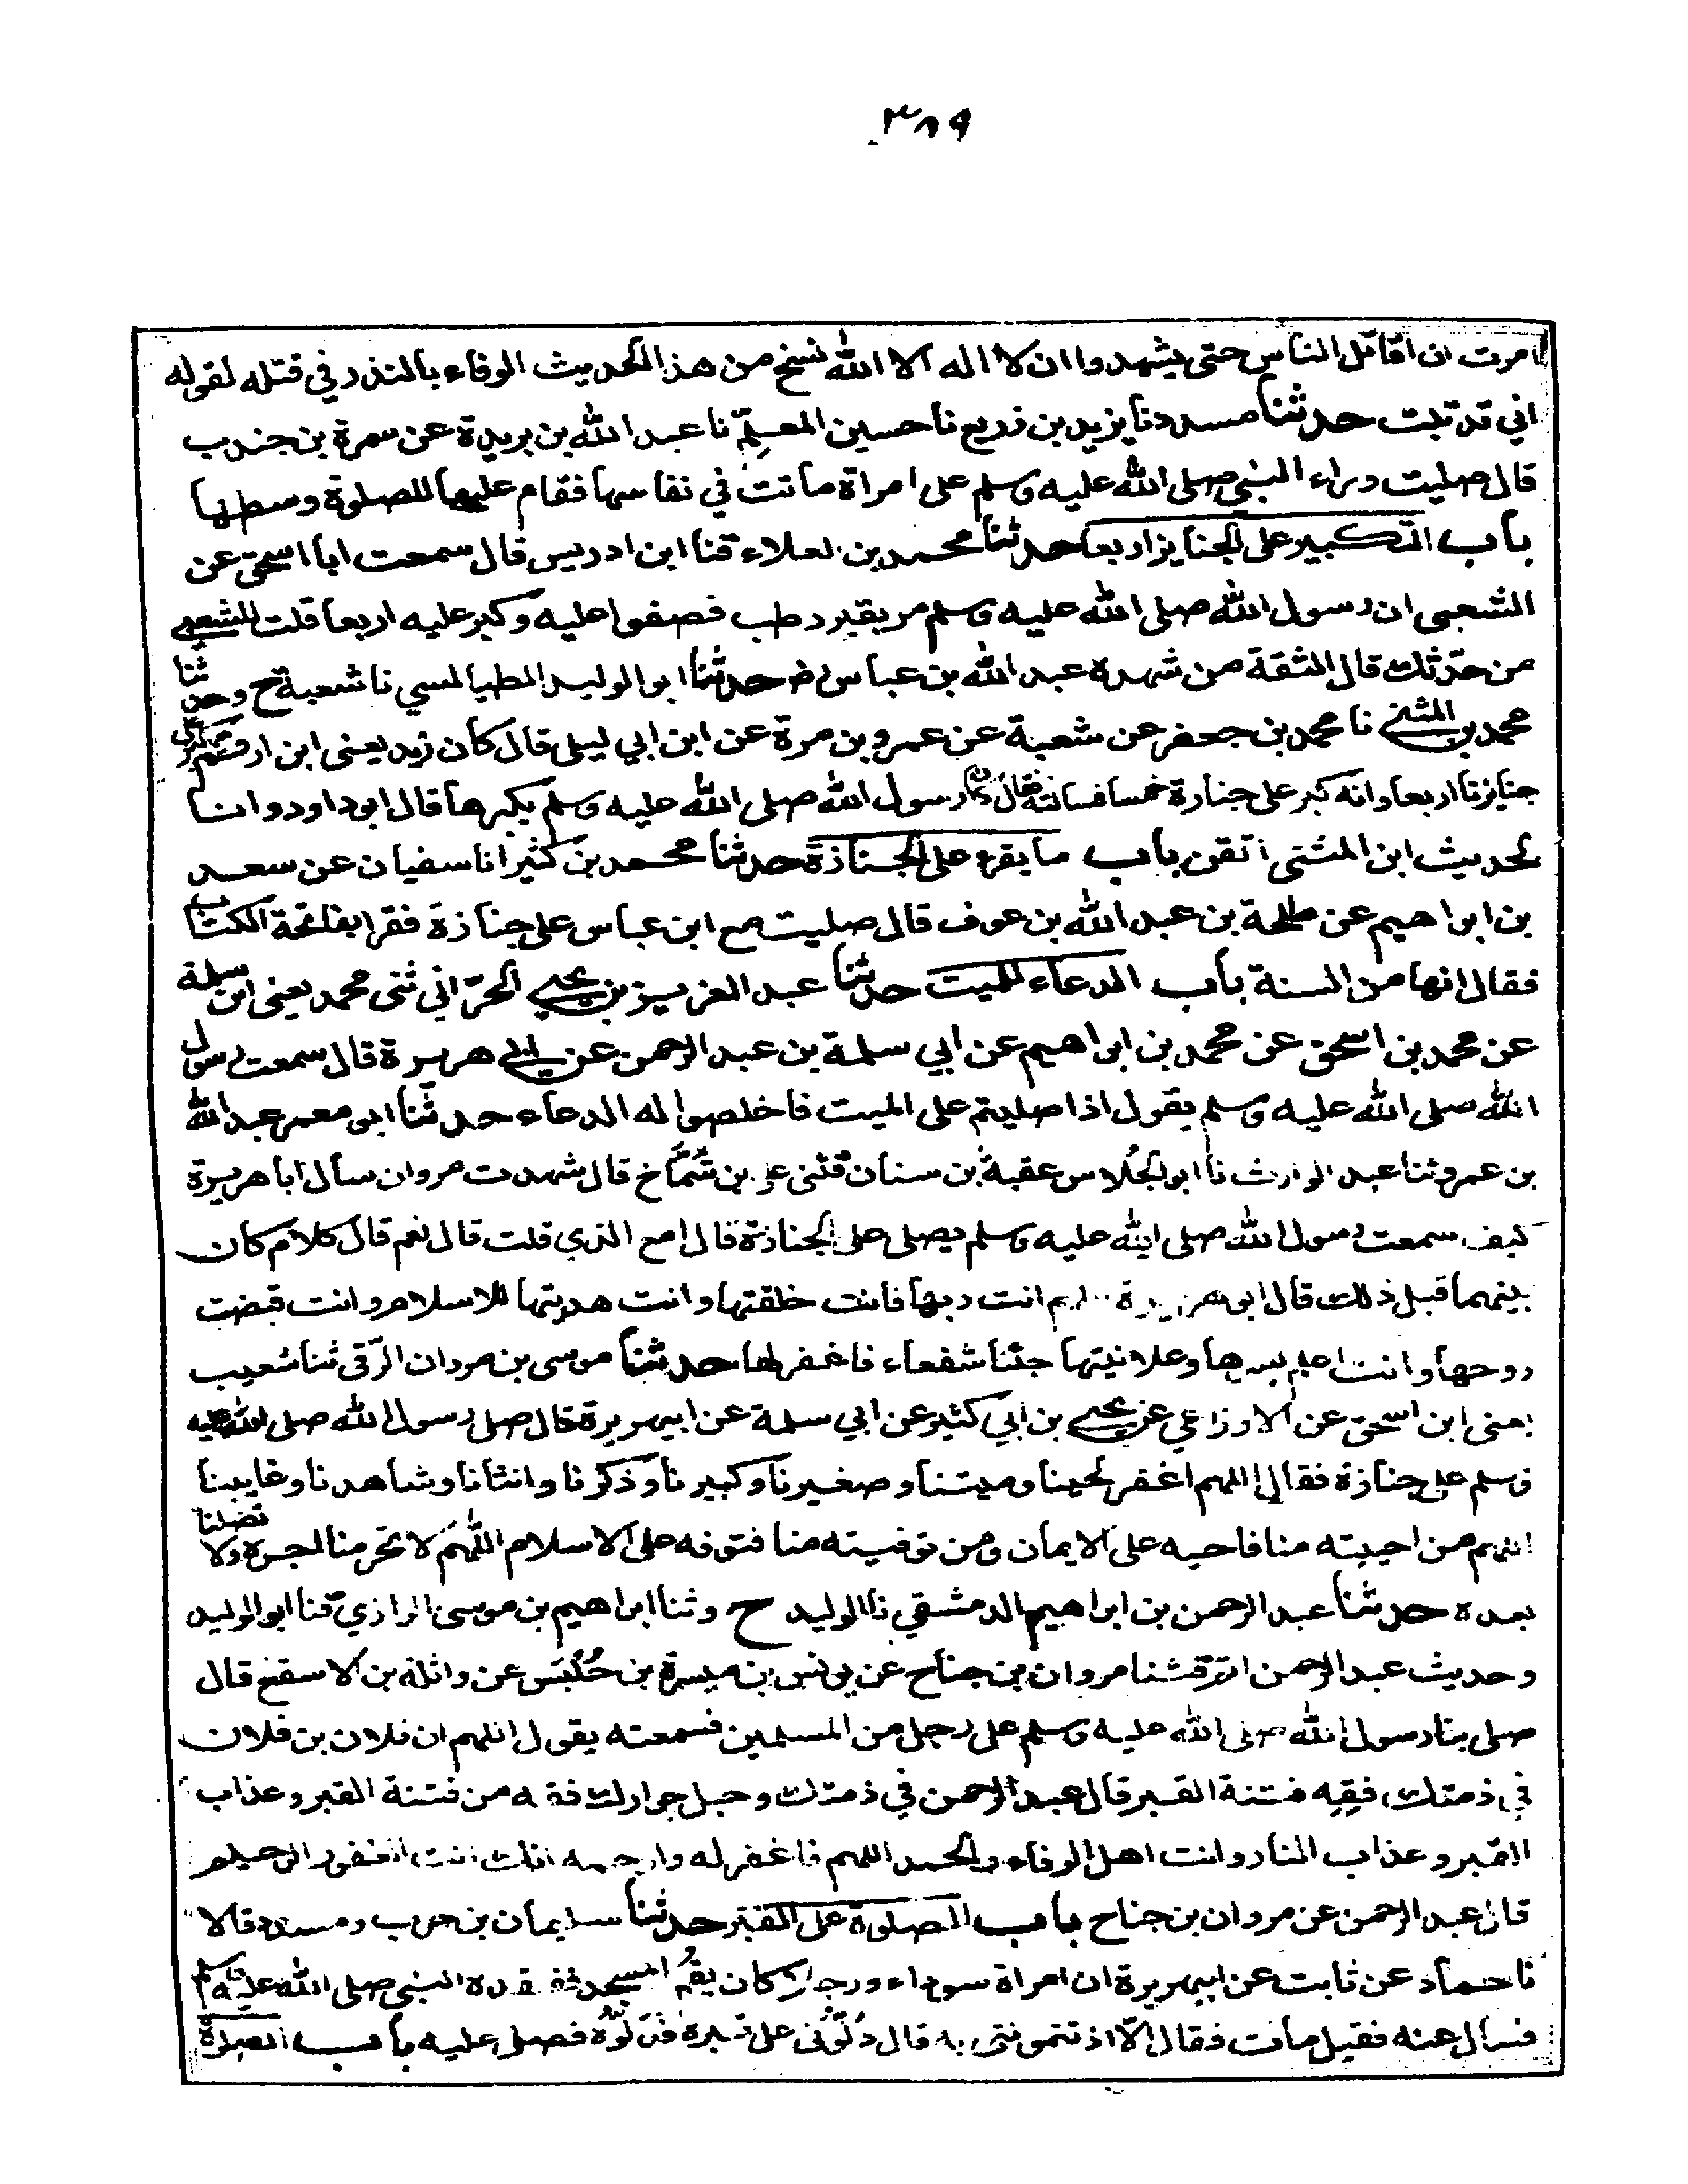 ٣٨٩
امرت ان اقاتل الناس حتى يشهدوا ان لا اله الا الله نسخ من هذا الحديث الوفاء بالنذر في قتله لقوله
اني قد تبت حدثنا مسدد نا يزيد بن زريع نا حسين المعلم نا عبد الله بن بريدة عن سمرة بن جندب
قال صليت وراء النبي صلى الله عليه وسلم على امراة ماتت في نفاسها فقام عليها للصلوة وسطها
باب التكبير على الجنايز اربعا حدثنا محمد بن العلاء قثنا ابن ادريس قال سمعت ابا اسحق عن
الشعبي ان رسول الله صلى الله عليه وسلم مر بقبر رطب فصفوا عليه وكبر عليه اربعا قلت للشعبي
من حدثك قال الثقة من شهده عبد الله بن عباس رض حدثنا ابو الوليد الطيالسي نا شعبة ح وحدثنا
محمد بن المثنى نا محمد بن جعفر عن شعبة عن عمرو بن مرة عن ابن ابي ليلى قال كان زيد يعني ابن ارقم يكبر على
جنايزنا اربعا وانه كبر على جنازة خمسا فسالته فقال كان رسول الله صلى الله عليه وسلم يكبرها قال ابو داود وانا
لحديث ابن المثنى اتقن باب ما يقرء على الجنازة حدثنا محمد بن كثير انا سفيان عن سعد
بن ابراهيم عن طلحة بن عبد الله بن عوف قال صليت مع ابن عباس على جنازة فقرا بفاتحة الكتاب
فقال انها من السنة باب الدعاء للميت حدثنا عبد العزيز بن يحيى الحرّاني ثنى محمد يعني ابن سلمة
عن محمد بن اسحق عن محمد بن ابراهيم عن ابي سلمة بن عبد الرحمن عن ابي هريرة قال سمعت رسول
الله صلى الله عليه وسلم يقول اذا صليتم على الميت فاخلصوا له الدعاء حدثنا ابو معمر عبد الله
بن عمرو ثنا عبد الوارث نا ابو الجُلاس عقبة بن سنان قثنى علي بن شمّاخ قال شهدت مروان سأل ابا هريرة
كيف سمعت رسول الله صلى الله عليه وسلم يصلي على الجنازة قال امع الذي قلت قال نعم قال كلام كان
بينهما قبل ذلك قال ابو هريرة اللهم انت ربها فانت خلقتها وانت هديتها للاسلام وانت قبضت
روحها وانت اعلم بسرها وعلانيتها جئنا شفعاء فاغفر لها حدثنا موسى بن مروان الرّقي ثنا شعيب
يعني ابن اسحق عن الاوزاعي عن يحيى بن ابي كثير عن ابي سلمة عن ابيهريرة قال صلى رسول الله صلى الله عليه
وسلم على جنازة فقال اللهم اغفر لحينا وميتنا وصغيرنا وكبيرنا وذكرنا وانثانا وشاهدنا وغايبنا
اللهم من احييته منا فاحيه على الايمان ومن توفيته منا فتوفه على الاسلام اللهم لا تحرمنا اجره ولا تضلنا
بعده حدثنا عبد الرحمن بن ابراهيم الدمشقي نا الوليد ح وثنا ابراهيم بن موسى الرازي قثنا ابو الوليد
وحديث عبد الرحمن اتم قثنا مروان بن جناح عن يونس بن ميسرة بن حُلْبَس عن واثلة بن الاسقع قال
صلى بنا رسول الله صلى الله عليه وسلم على رجل من المسلمين فسمعته يقول اللهم ان فلان بن فلان
في ذمتك فقِه فتنة القبر قال عبد الرحمن في ذمتك وحبل جوارك فقه من فتنة القبر وعذاب
القبر وعذاب النار وانت اهل الوفاء والحمد اللهم فاغفر له وارحمه انك انت الغفور الرحيم
قال عبد الرحمن عن مروان بن جناح باب الصلوة على القبر حدثنا سليمان بن حرب ومسدد قالا
نا حماد عن ثابت عن ابيهريرة ان امراة سوداء ورجلا كان يقُم المسجد ففقده النبي صلى الله عليه وسلم
فسال عنه فقيل مات فقال الّا اذنتموني به قال دُلّوني على قبره فدلّوه فصلى عليه باب الصلوة